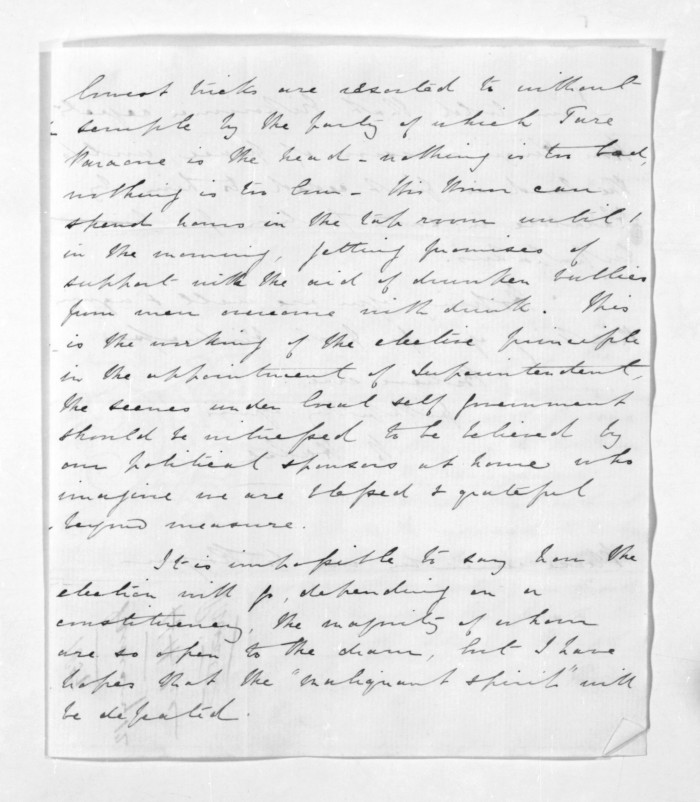 lowest tricks are resorted to without
scruple by the party of which Tare
is the head - nothing is too bad,
nothing is too low - this can
spend hours in the tap room until 1
in the morning, getting promises of
support with the aid of drunken bullies
from men overcome with drink. This
is the working of the elective principle
in the appointment of Superintendent,
the scenes under local self government
should be witnessed to be believed by
our political sponsors at home who
imagine we are blessed & grateful
beyond measure.
It is impossible to say how the
election will go, depending on a
constituency, the majority of whom
are so open to the dram, but I have
hopes that the "malignant spirit" will
be defeated.